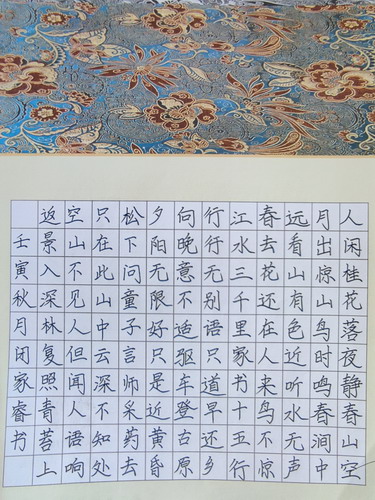 人闲桂花落夜静春山空
月出惊山鸟时鸣春涧中
远看山有色近听水无声
春去花还在人来鸟不惊
江水三千里家书十五行
行行无别语只道早还乡
向晚意不适驱车登古原
夕阳无限好只是近黄昏
松下问童子言师采药去
只在此山中云深不知处
空山不见人但闻人语响
返景入深林复照青苔上
壬寅秋月闭家睿书